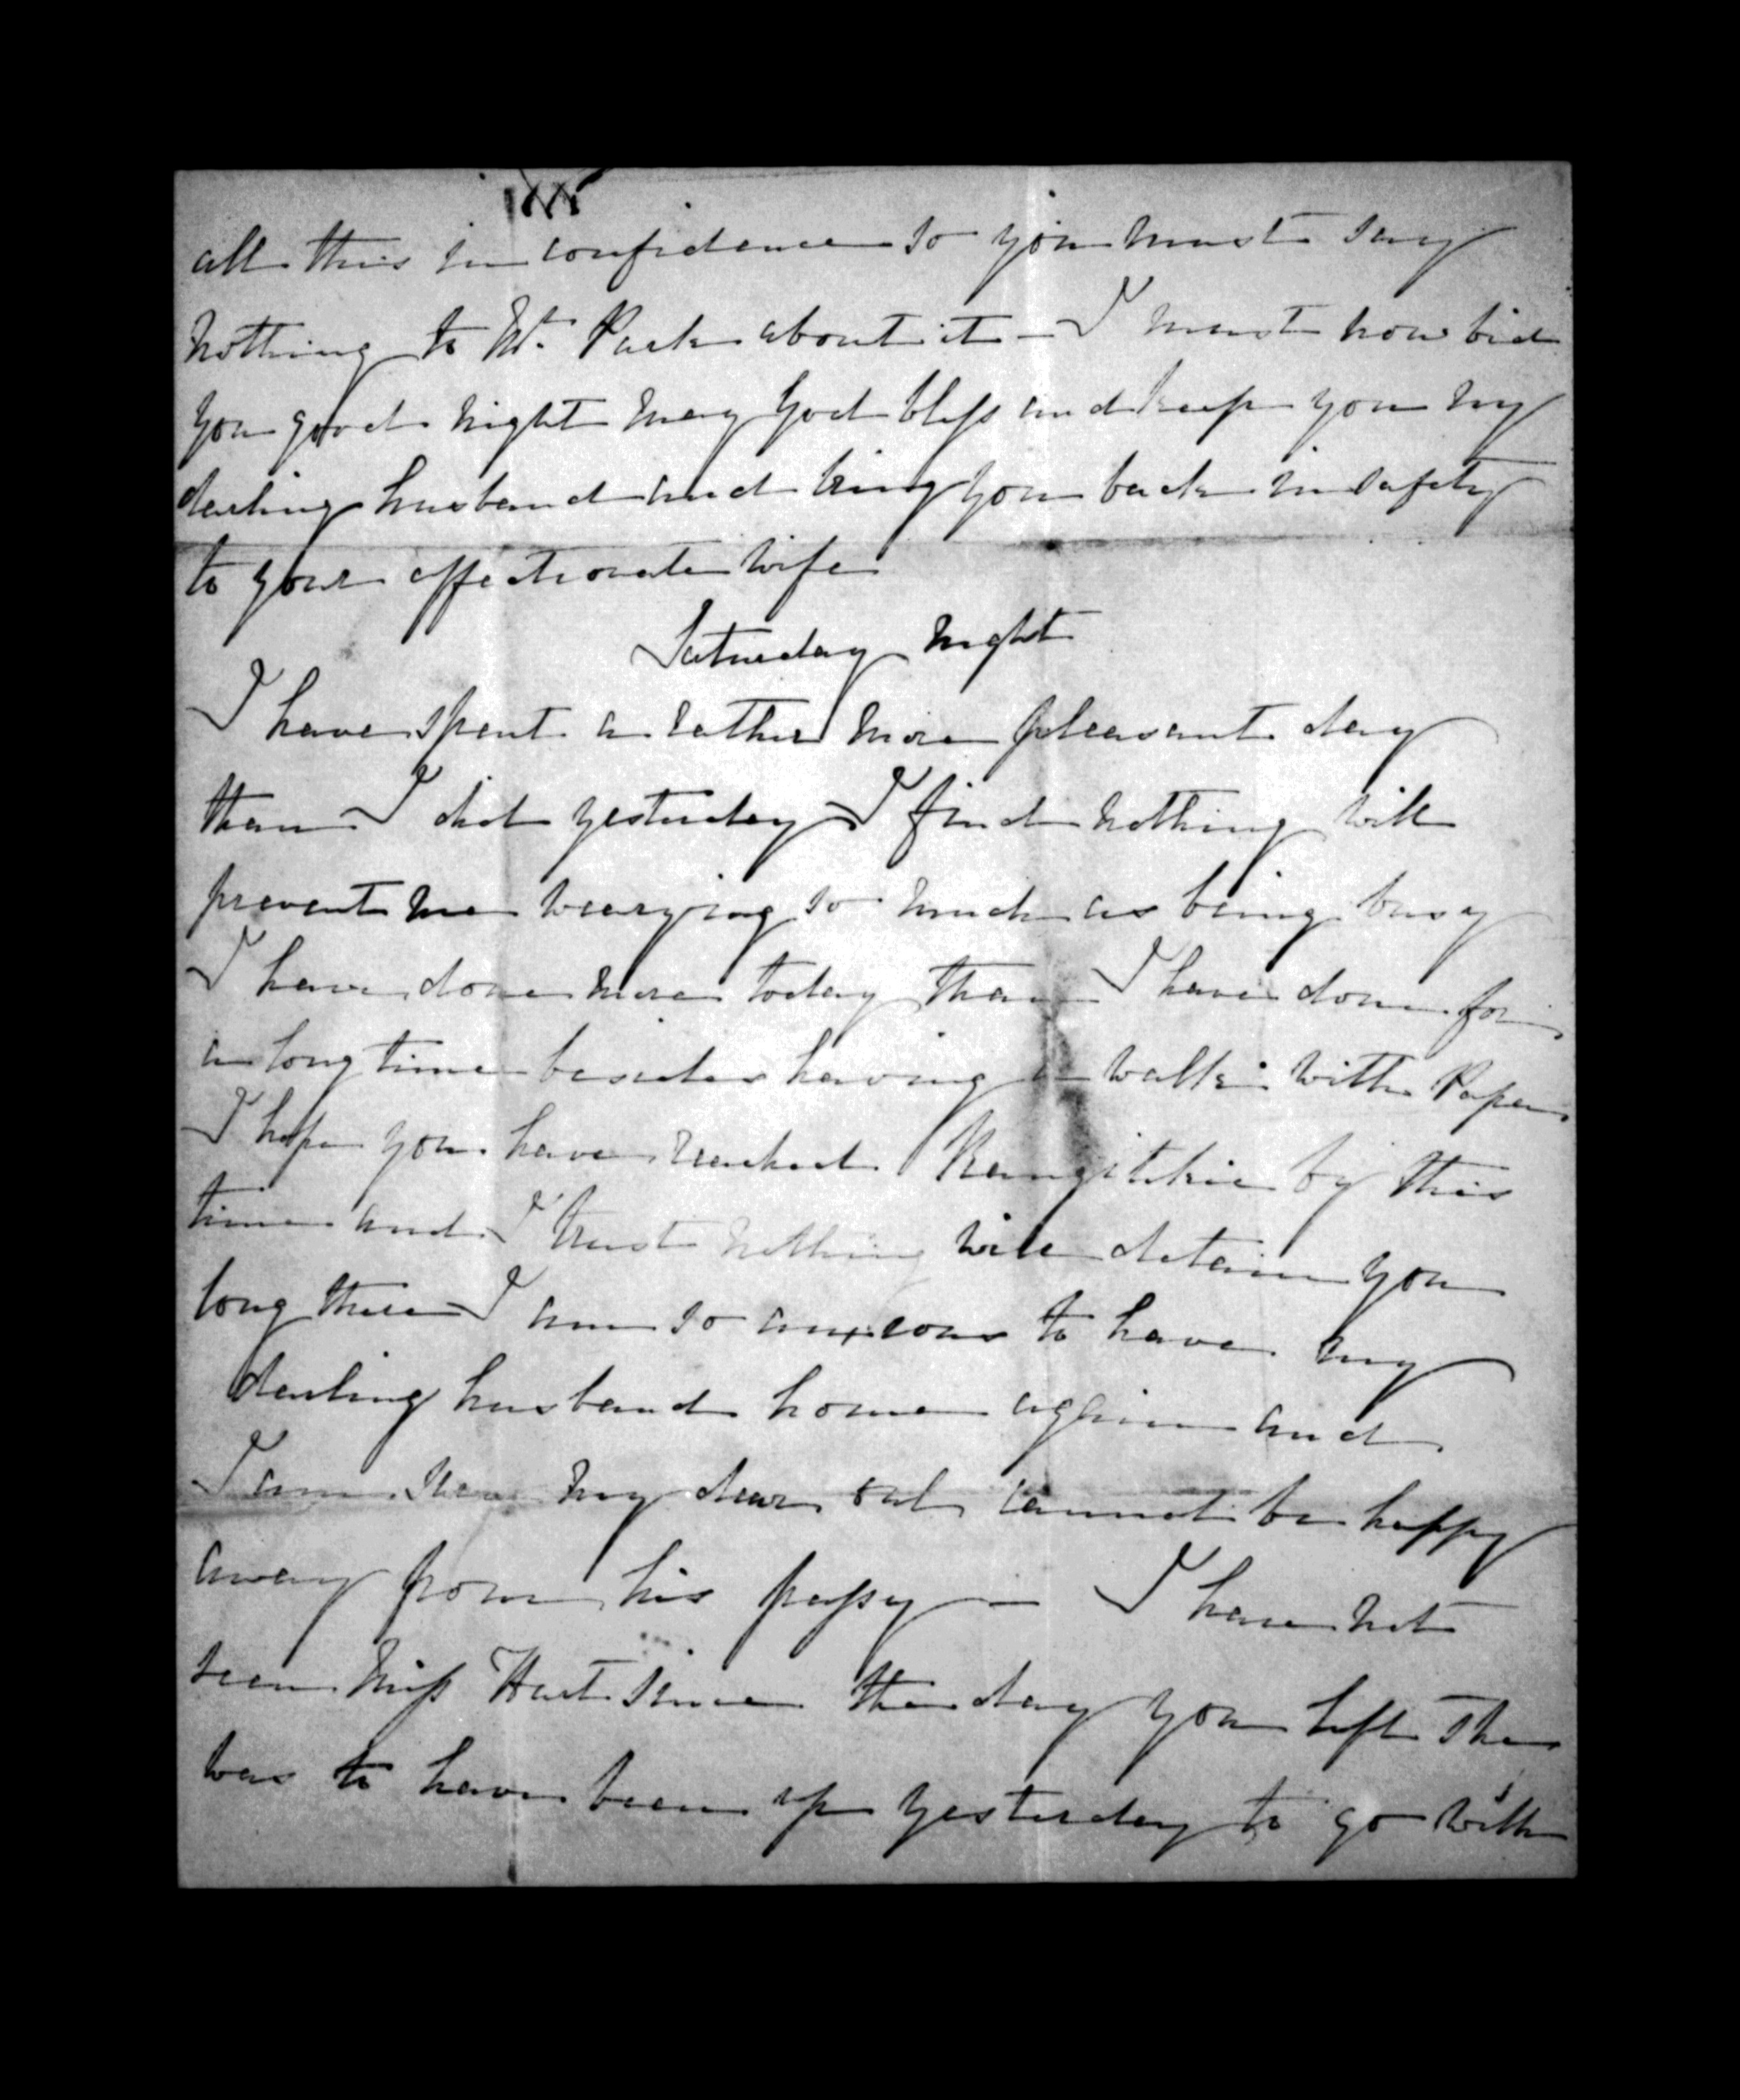 all this in confidence so you must say
nothing to Mr. Park about it - I must now bid
you good night may God bless and keep you my
darling husband and bring you back in safety
to your affectionate wife
Saturday night
I have spent a rather more pleasant day
than I did yesterday I find nothing will
prevent me wearying so much as being busy
I have done more today than I have done for
a long time besides having a walk with Papa
I hope you have reached Rangitikie by this
time and I trust nothing will detain you
long there I am so anxious to have my
darling husband home again and
I am sure my dear cannot be happy
away from his pussy - I have not
seen Miss Hart since the day you left She
was to have been up yesterday to go with